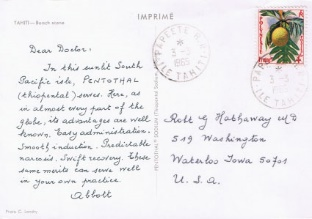 IMPRIMÉ
Dear Doctor:
In this sunlit South
Pacific isle, PENTOTHAL
(thiopental) serves. Here, as
in almost every part of the
globe, its advantages are well
known. Easy administration.
Smooth induction. Predictable
narcosis. Swift recovery. These
same merits can serve well
in your own practice.
Abbott
PAPEETE
ILE TAHITI
Robt G Hathaway MD
519 Washington
Waterloo Iowa 50701
U. S. A.